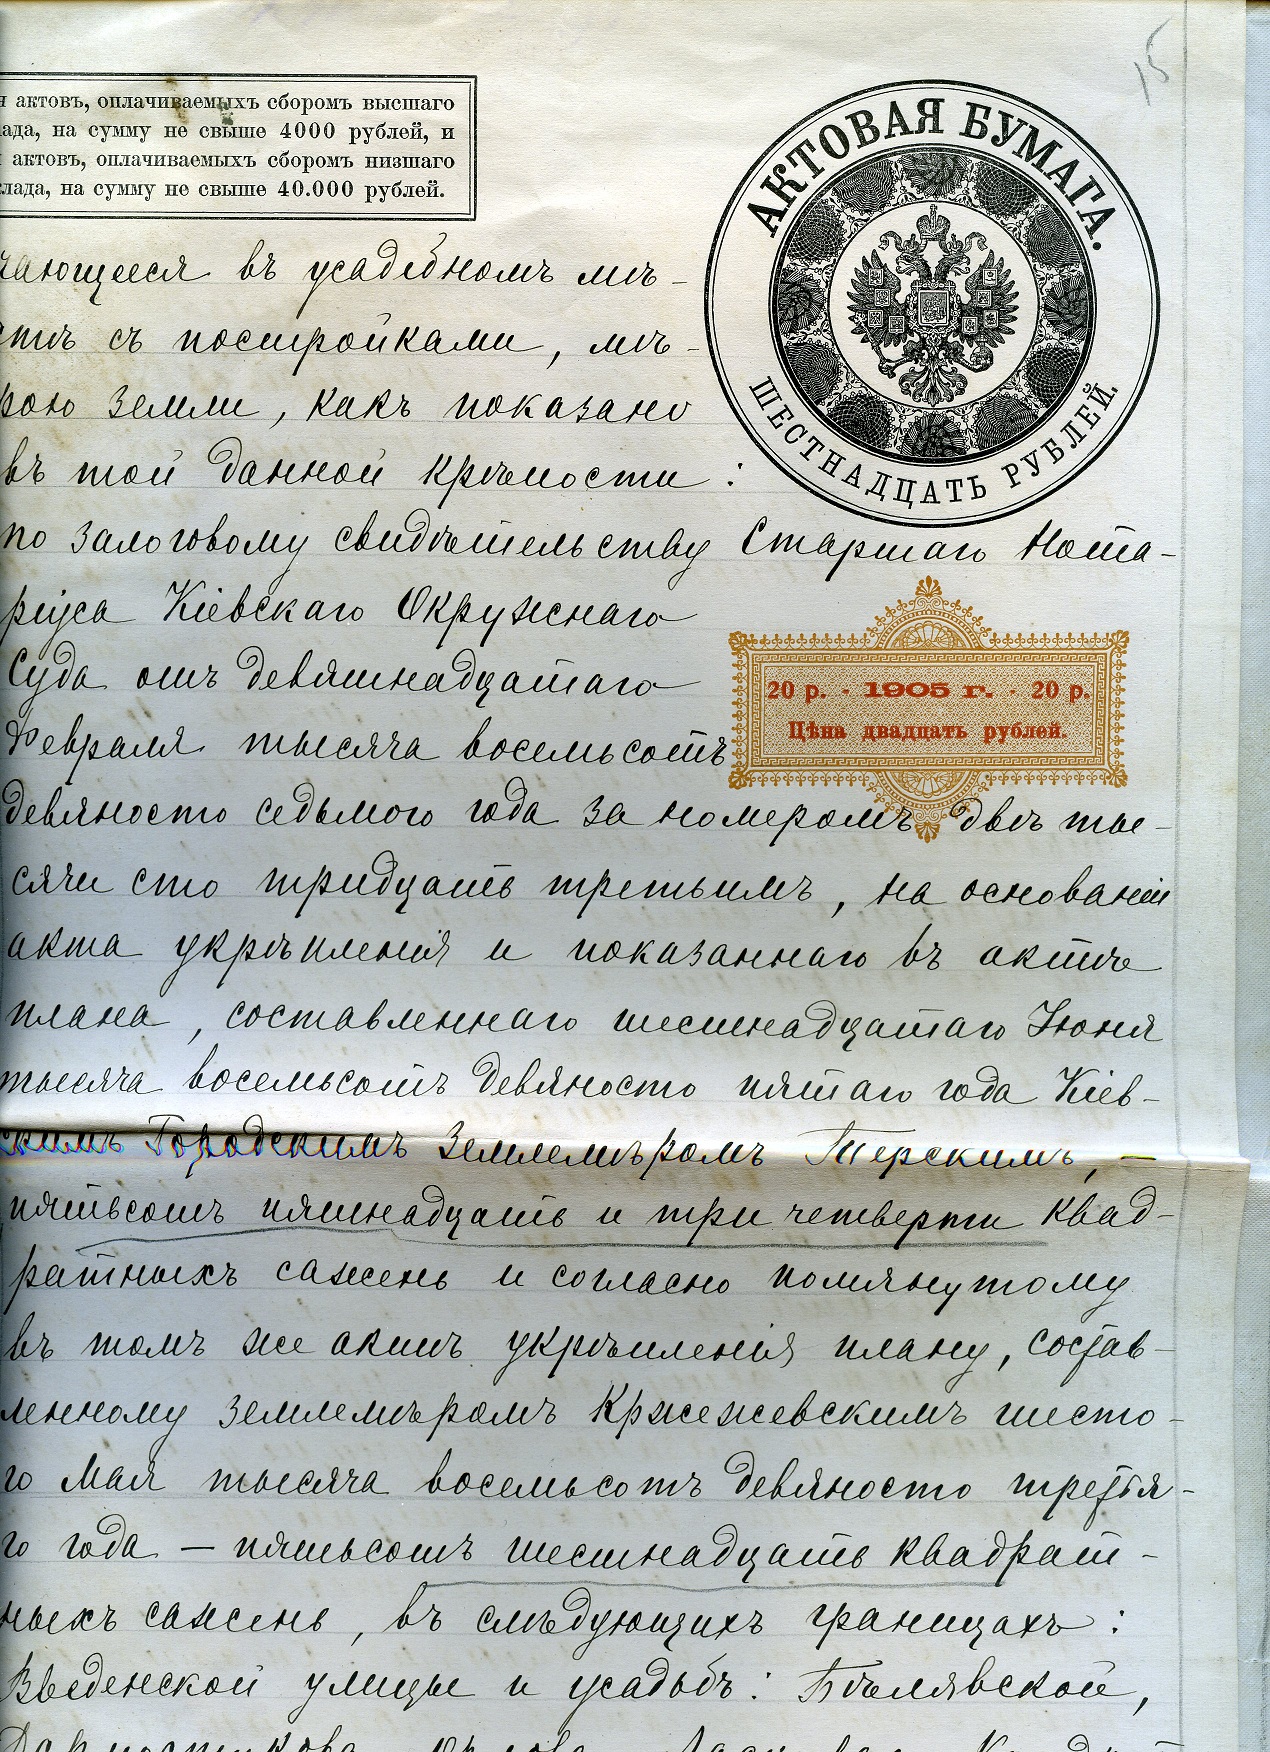 15
актовъ, оплачиваемыхъ сборомъ высшаго
лада, на сумму не свыше 4000 рублей, и
актовъ, оплачиваемыхъ сборомъ низшаго
клада, на сумму не свыше 40.000 рублей.
АКТОВАЯ БУМАГА.
ШЕСТНАДЦАТЬ РУБЛЕЙ.
чающееся въ усадебномъ мѣ-
стѣ съ постройками, мѣ-
рою земли, какъ показано
въ той данной крѣпости:
по залоговому свидѣтельству Старшаго Нота-
ріуса Кіевскаго Окружнаго
Суда отъ девятнадцатаго
Февраля тысяча восемьсотъ
20 р. - 1905 г. - 20 р.
Цѣна двадцать рублей.
девяносто седьмого года за номеромъ двѣ ты-
сячи сто тридцать третьимъ, на основаніи
акта укрѣпленія и показаннаго въ актѣ
плана, составленнаго шестнадцатаго Іюня
тысяча восемьсотъ девяносто пятаго года Кіев-
скимъ Городскимъ Землемѣромъ Терскимъ, —
пятьсотъ пятнадцать и три четверти квад-
ратныхъ сажень и согласно помянутому
въ томъ же актѣ укрѣпленія плану, состав-
ленному землемѣромъ Кржежевскимъ шесто-
го Мая тысяча восемьсотъ девяносто третья-
го года — пятьсотъ шестнадцать квадрат-
ныхъ сажень, въ слѣдующихъ границахъ:
Введенской улицы и усадьбъ: Бѣлявской,